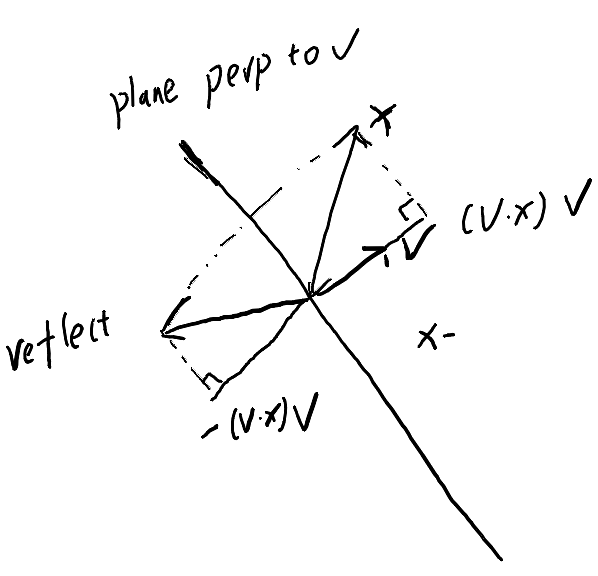 plane perp to v
x
(v·x) v
v
reflect
x-
-(v·x) v